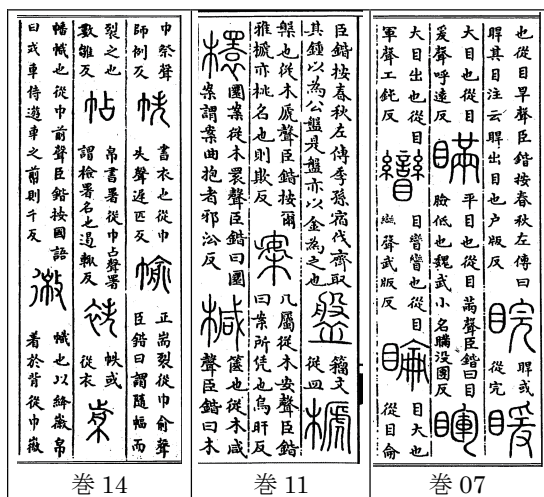 也從目旱聲臣鍇按春秋左傳曰
睅其目注云睅出目也户版反
睆
睅或
從完
暖
大目也從目
爰聲呼遠反
瞞
平目也從目㒼聲臣鍇曰目
瞼低也魏武小名瞞没團反
睴
大目出也從目
軍聲工鈍反
矕
目矕矕也從目
䜌聲武版反
睔
目大也
從目侖
巻 07
臣鍇按春秋左傳季孫宿伐齊取
其鍾以為公盤是盤亦以金為之也
盤
籀文
從皿
榹
槃也從木虒聲臣鍇按爾
雅榹亦桃名也則欺反
案
几屬從木安聲臣鍇
曰案所凭也烏旰反
檈
圜案從木瞏聲臣鍇曰圜
案謂案曲抱者邪㳂反
椷
篋也從木咸
聲臣鍇曰木
巻 11
巾祭聲
師例反
帙
書衣也從巾
失聲遲匹反
㡏
正耑裂從巾俞聲
臣鍇曰謂隨幅而
裂之也
數雛反
帖
帛書署從巾占聲署
謂檢署名也遏輒反
袟
帙或
從衣
㡐
幡幟也從巾前聲臣鍇按國語
曰戎車待遊車之㡐則千反
幑
幟也以絳徽帛
着於背從巾微
巻 14